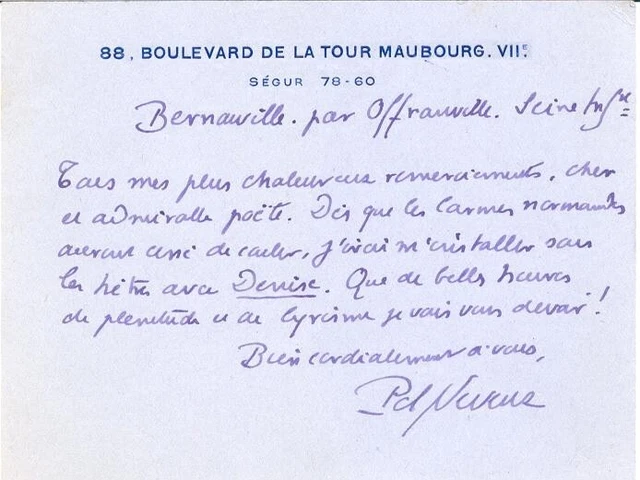 88, BOULEVARD DE LA TOUR MAUBOURG. VIIE.
SÉGUR 78-60
Bernouville. par Offranville. Seine Infre
Tous mes plus chaleureux remerciements, cher
et admirable poëte. Dès que les larmes normandes
auront cessé de couler, j'irai m'installer sous
les hêtres avec Denise. Que de belles heures
de plénitude et de lyrisme je vais vous devoir!
Bien cordialement à vous,